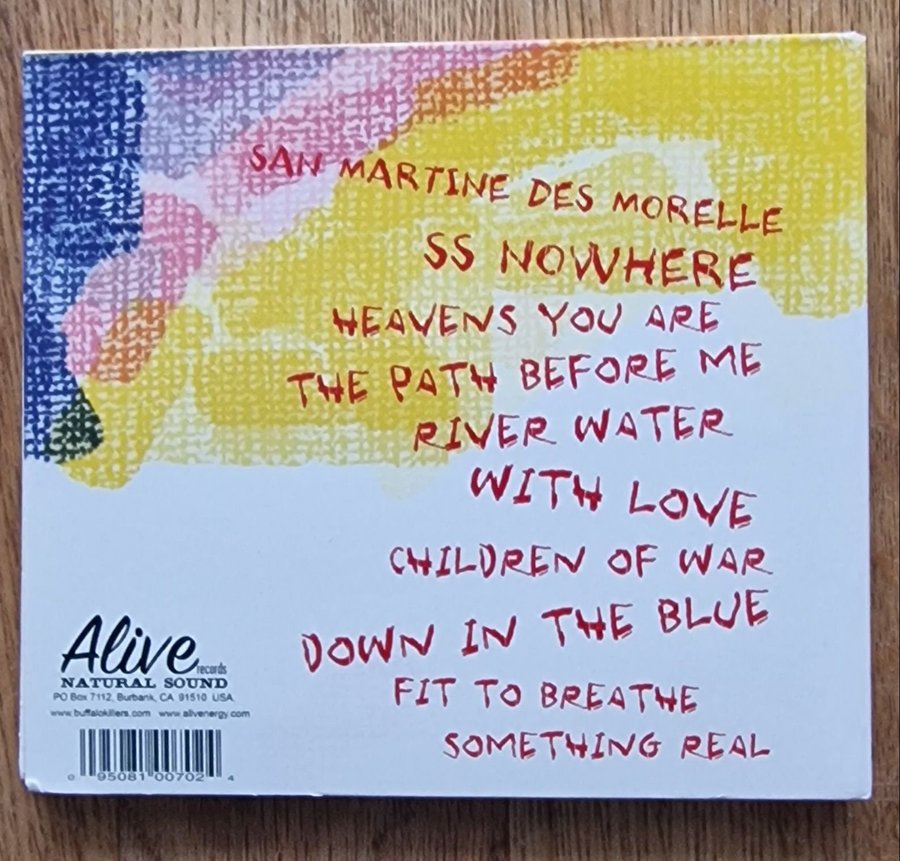 SAN MARTINE DES MORELLE
SS NOWHERE
HEAVENS YOU ARE
THE PATH BEFORE ME
RIVER WATER
WITH LOVE
CHILDREN OF WAR
DOWN IN THE BLUE
FIT TO BREATHE
SOMETHING REAL
Alive records
NATURAL SOUND
PO Box 7112, Burbank, CA 91510 USA
www.buffalokillers.com www.alivenergy.com
0 95081 00702 4